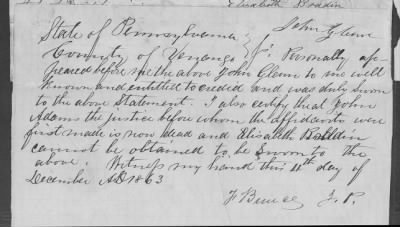 Elizabeth Boldin
John Glenn
State of Pennsylvania
County of Venango } s. Personally ap-
peared before me the above John Glenn to me well
known and entitled to credid and was duly sworn
to the above Statement. I also certify that John
Adams the justice before whom the affidavits were
first made is now dead and Elizabeth Boldin
cannot be obtained to be sworn to the
above. Witness my hand this 11th day of
December AD 1863
J. P.